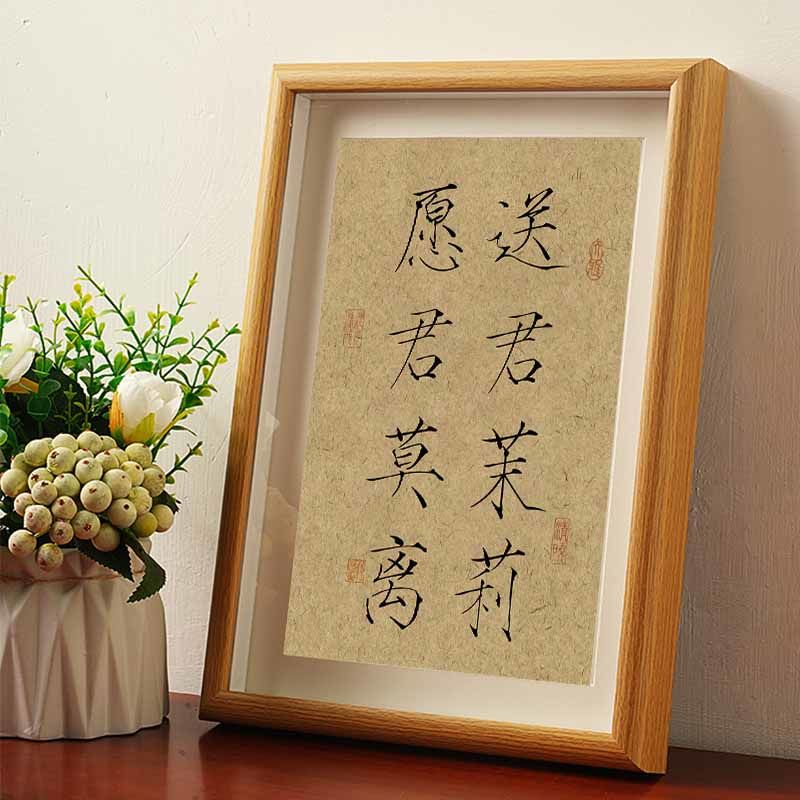 送君茉莉
愿君莫离